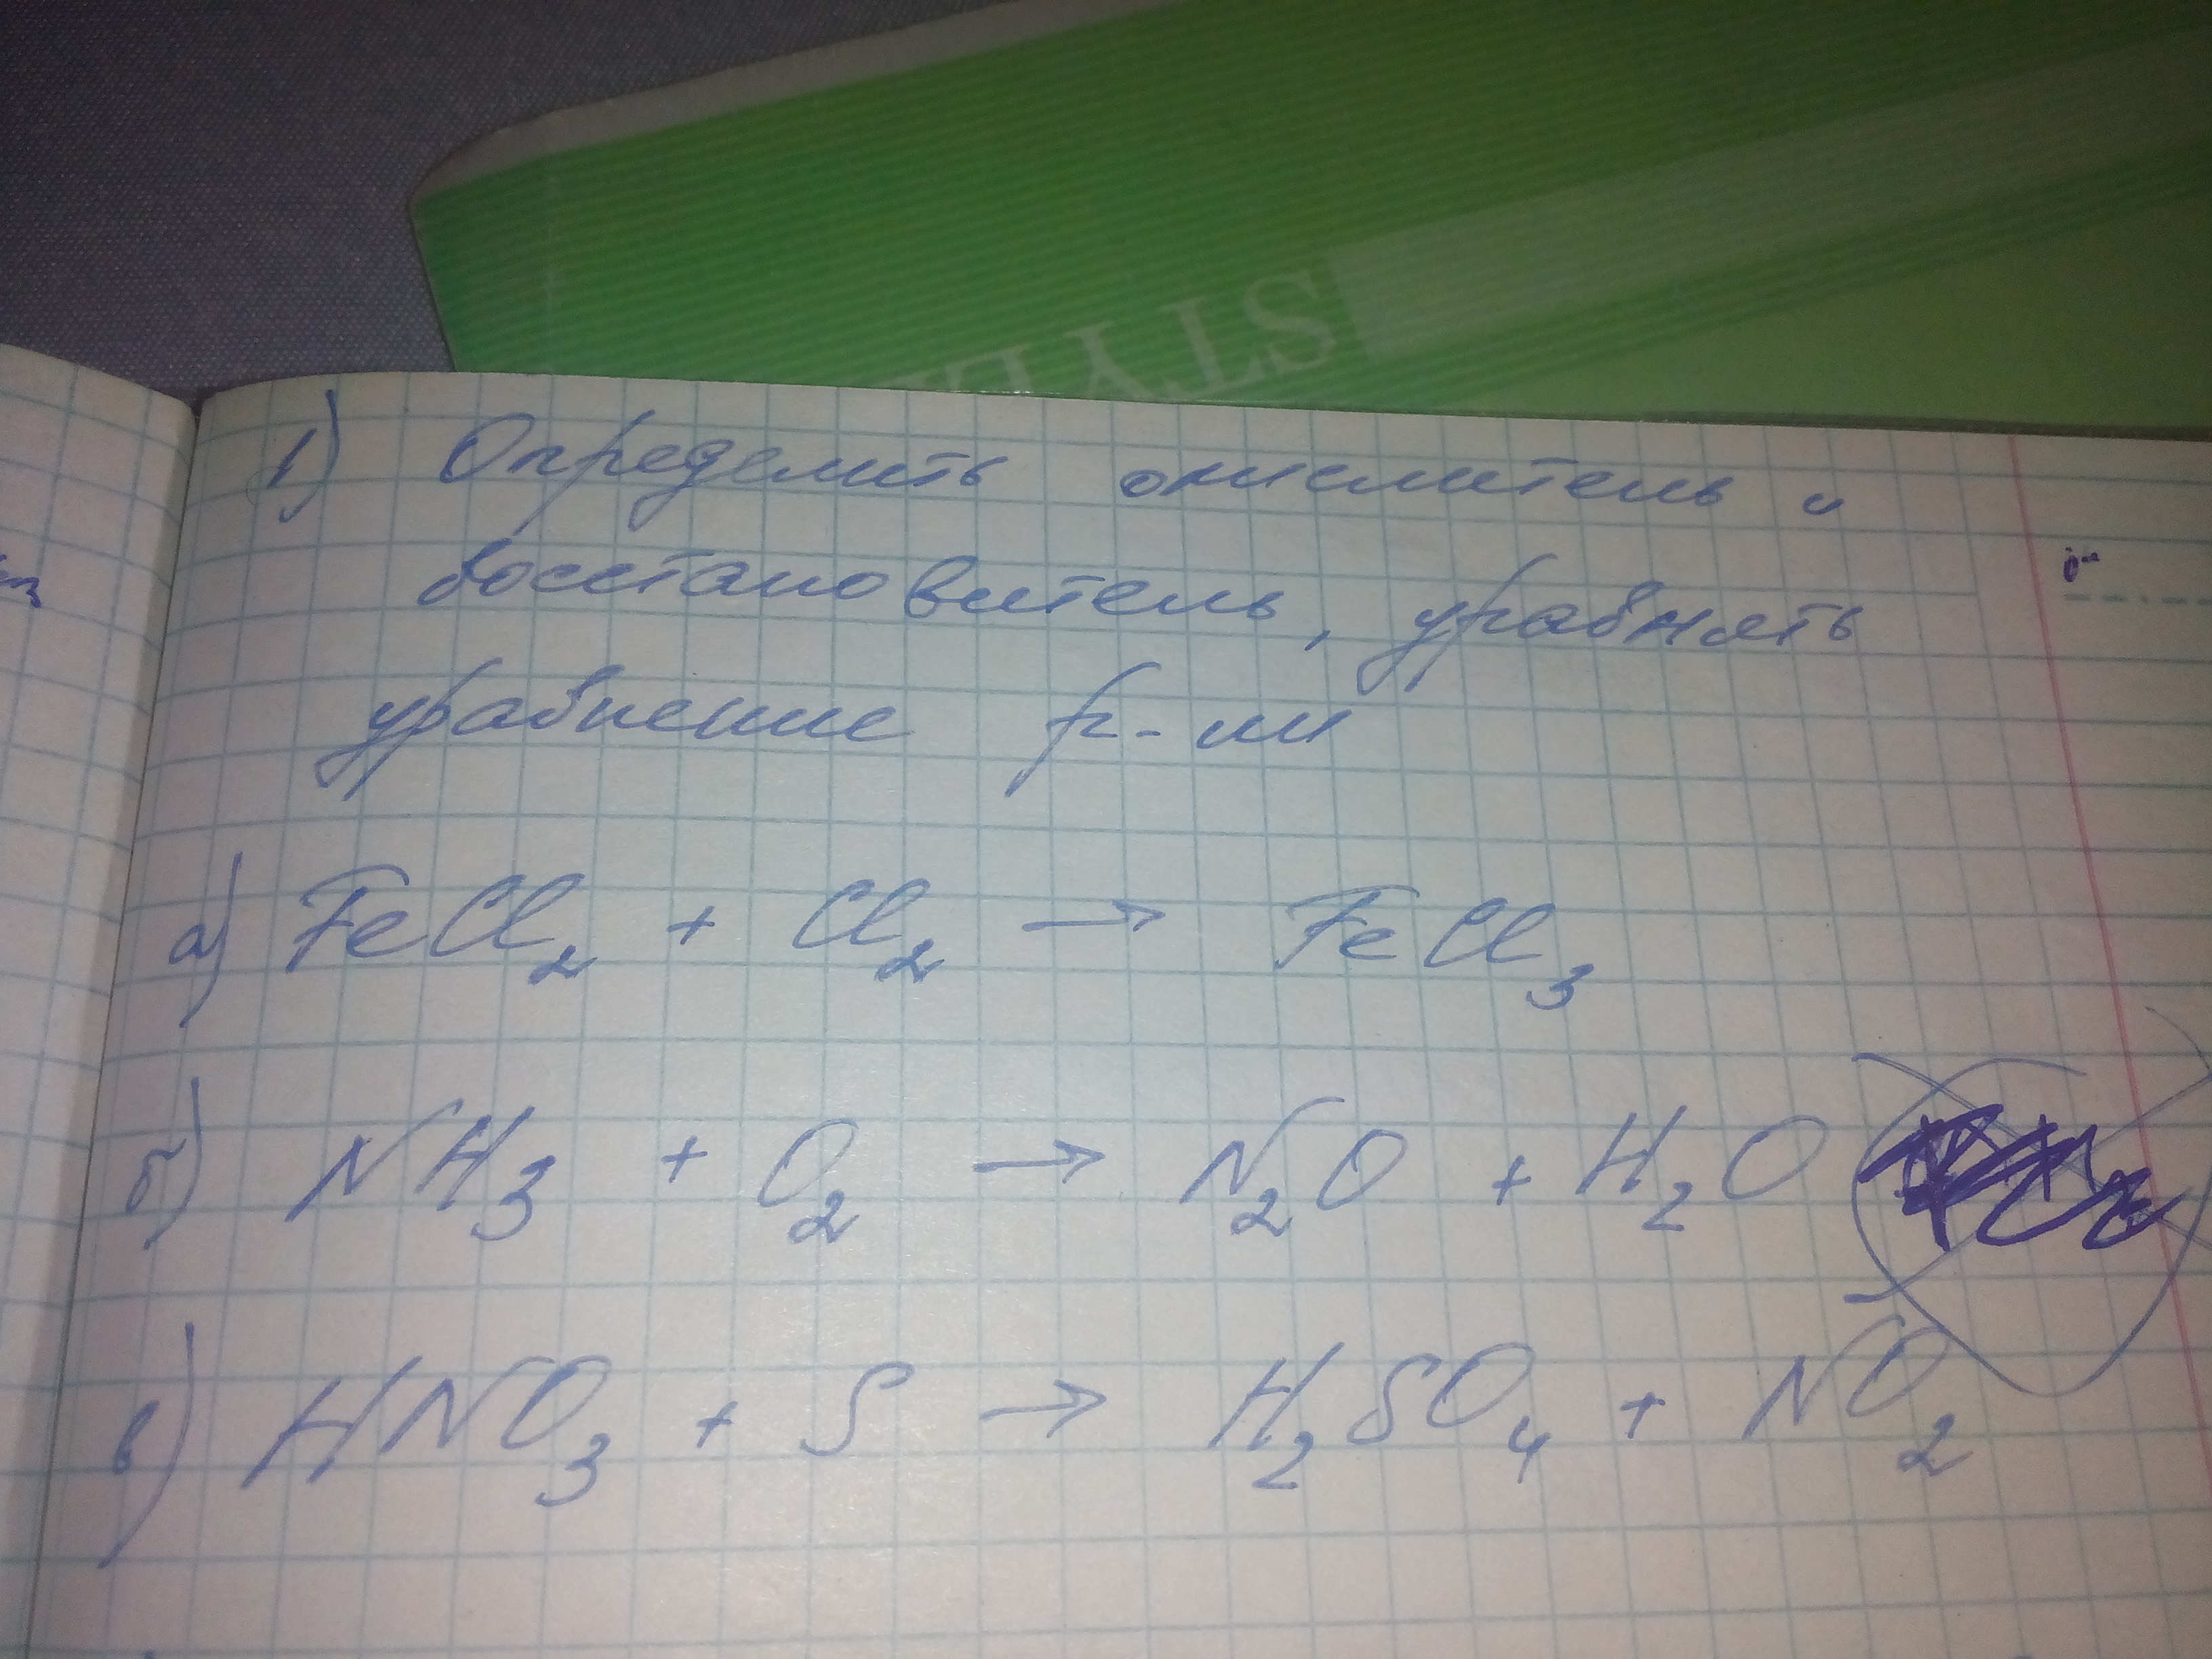 STYL
1) Определить окислитель и
восстановитель, уравнять
уравнение р-ии
а) FeCl₂ + Cl₂ → FeCl₃
б) NH₃ + O₂ → N₂O + H₂O
в) HNO₃ + S → H₂SO₄ + NO₂